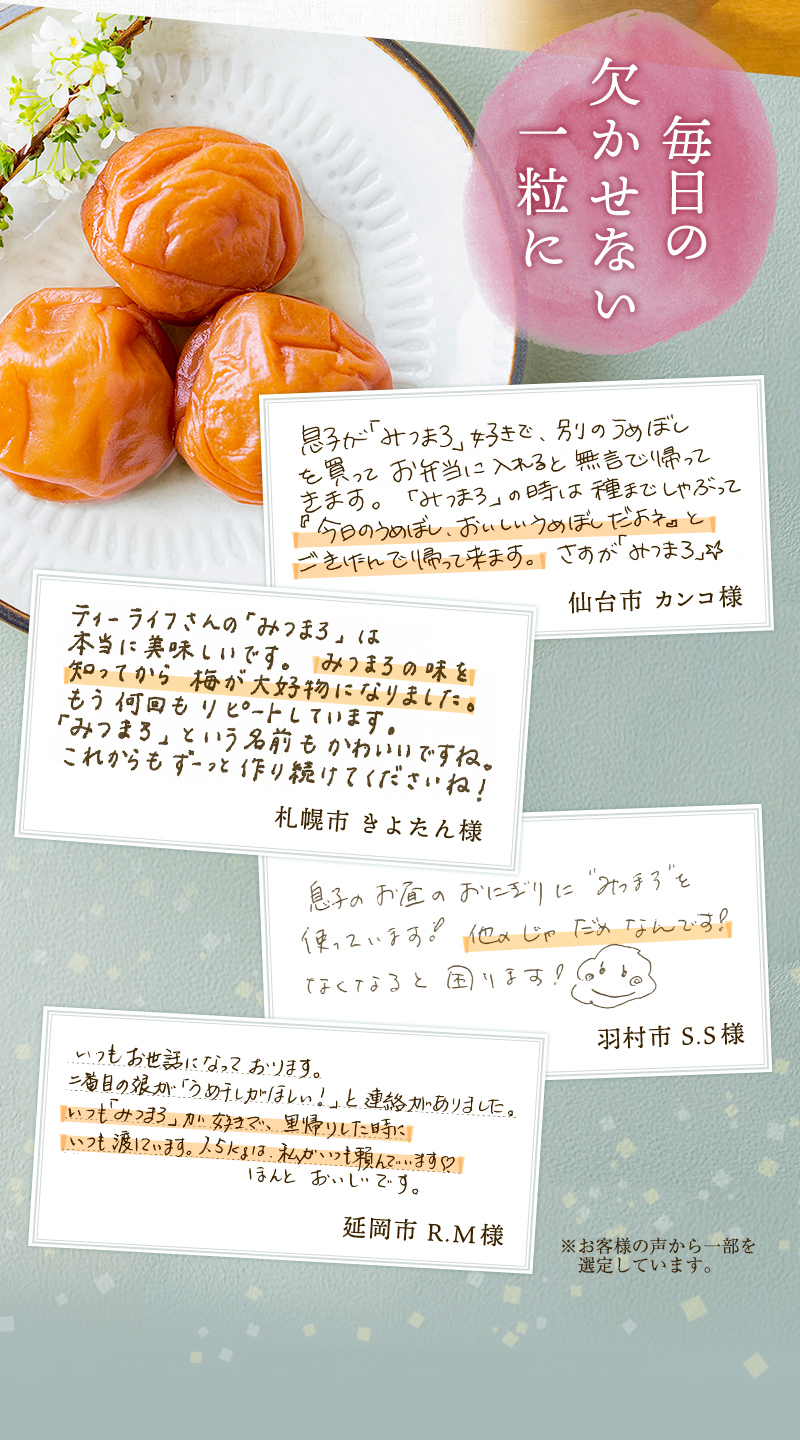 毎日の
欠かせない
一粒に
息子が「みつまろ」好きで、別のうめぼし
を買って お弁当に入れると 無言で帰って
きます。「みつまろ」の時は 種までしゃぶって
『今日のうめぼし、おいしいうめぼしだよネ』と
ごきげんで帰って来ます。 さすが「みつまろ」☆
仙台市 カンコ様
ティーライフさんの「みつまろ」は
本当に美味しいです。 みつまろの味を
知ってから 梅が大好物になりました。
もう何回もリピートしています。
「みつまろ」という名前もかわいいですね。
これからもずーっと作り続けてくださいね！
札幌市 きよたん様
息子の お昼の おにぎりに "みつまろ"を
使っています！ 他のじゃ だめ なんです！
なくなると 困ります！
羽村市 S.S様
いつもお世話になって おります。
二番目の娘が「うめ干しがほしい！」と連絡がありました。
いつも「みつまろ」が好きで、里帰りした時に
いつも渡しています。1.5kgは、私がいつも頼んでいます♡
ほんと おいしいです。
延岡市 R.M様
※お客様の声から一部を
選定しています。